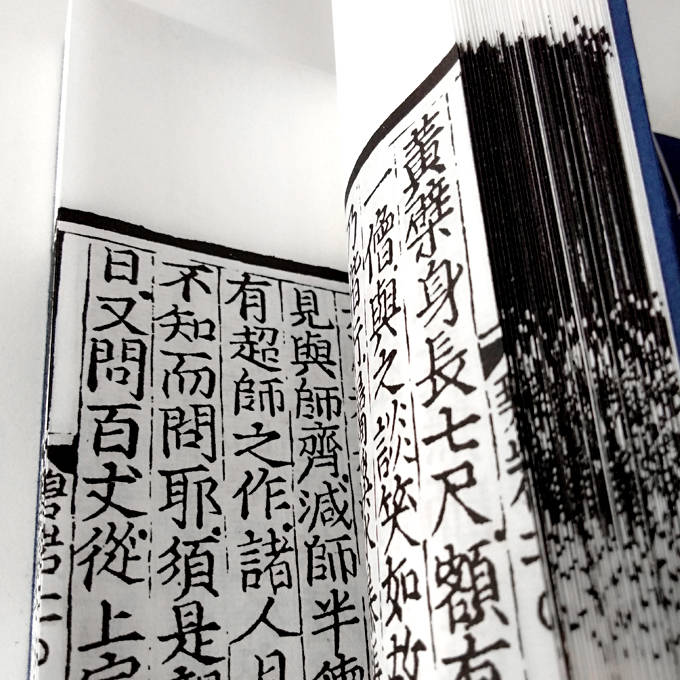 黃檗身長七尺額有
一僧與之談笑如故
見與師齊減師半德
有超師之作諸人且
不知而問耶須是
日又問百丈從上宗